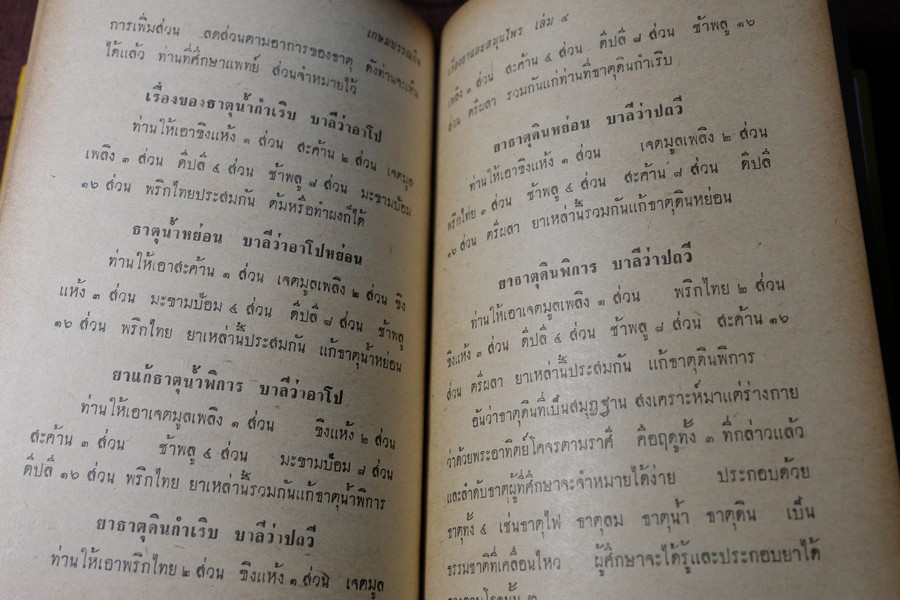 เกษมบรรณกิจ
การเพิ่มส่วน ลดส่วนตามอาการของธาตุ ดังท่านจะเห็น
ได้แล้ว ท่านที่ศึกษาแพทย์ ส่วนจำหมายไว้
เรื่องของธาตุน้ำกำเริบ บาลีว่าอาโป
ท่านให้เอาขิงแห้ง ๑ ส่วน สะค้าน ๒ ส่วน เจตมูล
เพลิง ๓ ส่วน ดีปลี ๔ ส่วน ช้าพลู ๘ ส่วน มะขามป้อม
๑๖ ส่วน พริกไทยประสมกัน ต้มหรือทำผงก็ได้
ธาตุน้ำหย่อน บาลีว่าอาโปหย่อน
ท่านให้เอาสะค้าน ๑ ส่วน เจตมูลเพลิง ๒ ส่วน ขิง
แห้ง ๓ ส่วน มะขามป้อม ๔ ส่วน ดีปลี ๘ ส่วน ช้าพลู
๑๖ ส่วน พริกไทย ยาเหล่านี้ประสมกัน แก้ธาตุน้ำหย่อน
ยาแก้ธาตุน้ำพิการ บาลีว่าอาโป
ท่านให้เอาเจตมูลเพลิง ๑ ส่วน ขิงแห้ง ๒ ส่วน
สะค้าน ๓ ส่วน ช้าพลู ๔ ส่วน มะขามป้อม ๘ ส่วน
ดีปลี ๑๖ ส่วน พริกไทย ยาเหล่านี้รวมกันแก้ธาตุน้ำพิการ
ยาธาตุดินกำเริบ บาลีว่าปถวี
ท่านให้เอาพริกไทย ๒ ส่วน ขิงแห้ง ๑ ส่วน เจตมูล
และสมุนไพร เล่ม ๔
เพลิง ๑ ส่วน สะค้าน ๔ ส่วน ดีปลี ๘ ส่วน ช้าพลู ๑๖
ส่วน ตรีผลา รวมกันแก้ท่านที่ธาตุดินกำเริบ
ยาธาตุดินหย่อน บาลีว่าปถวี
ท่านให้เอาขิงแห้ง ๑ ส่วน เจตมูลเพลิง ๒ ส่วน
พริกไทย ๓ ส่วน ช้าพลู ๔ ส่วน สะค้าน ๘ ส่วน ดีปลี
๑๖ ส่วน ตรีผลา ยาเหล่านี้รวมกันแก้ธาตุดินหย่อน
ยาธาตุดินพิการ บาลีว่าปถวี
ท่านให้เอาเจตมูลเพลิง ๑ ส่วน พริกไทย ๒ ส่วน
ขิงแห้ง ๓ ส่วน ดีปลี ๔ ส่วน ช้าพลู ๘ ส่วน สะค้าน ๑๖
ส่วน ตรีผลา ยาเหล่านี้ประสมกัน แก้ธาตุดินพิการ
อันว่าธาตุดินที่เป็นสมุฏฐาน สงเคราะห์มาแต่ร่างกาย
ว่าด้วยพระอาทิตย์โคจรตามราศี คือฤดูทั้ง ๓ ที่กล่าวแล้ว
และลำดับธาตุผู้ที่ศึกษาจะจำหมายได้ง่าย ประกอบด้วย
ธาตุทั้ง ๔ เช่นธาตุไฟ ธาตุลม ธาตุน้ำ ธาตุดิน เป็น
ธรรมชาติที่เคลื่อนไหว ผู้ศึกษาจะได้รู้และประกอบยาได้